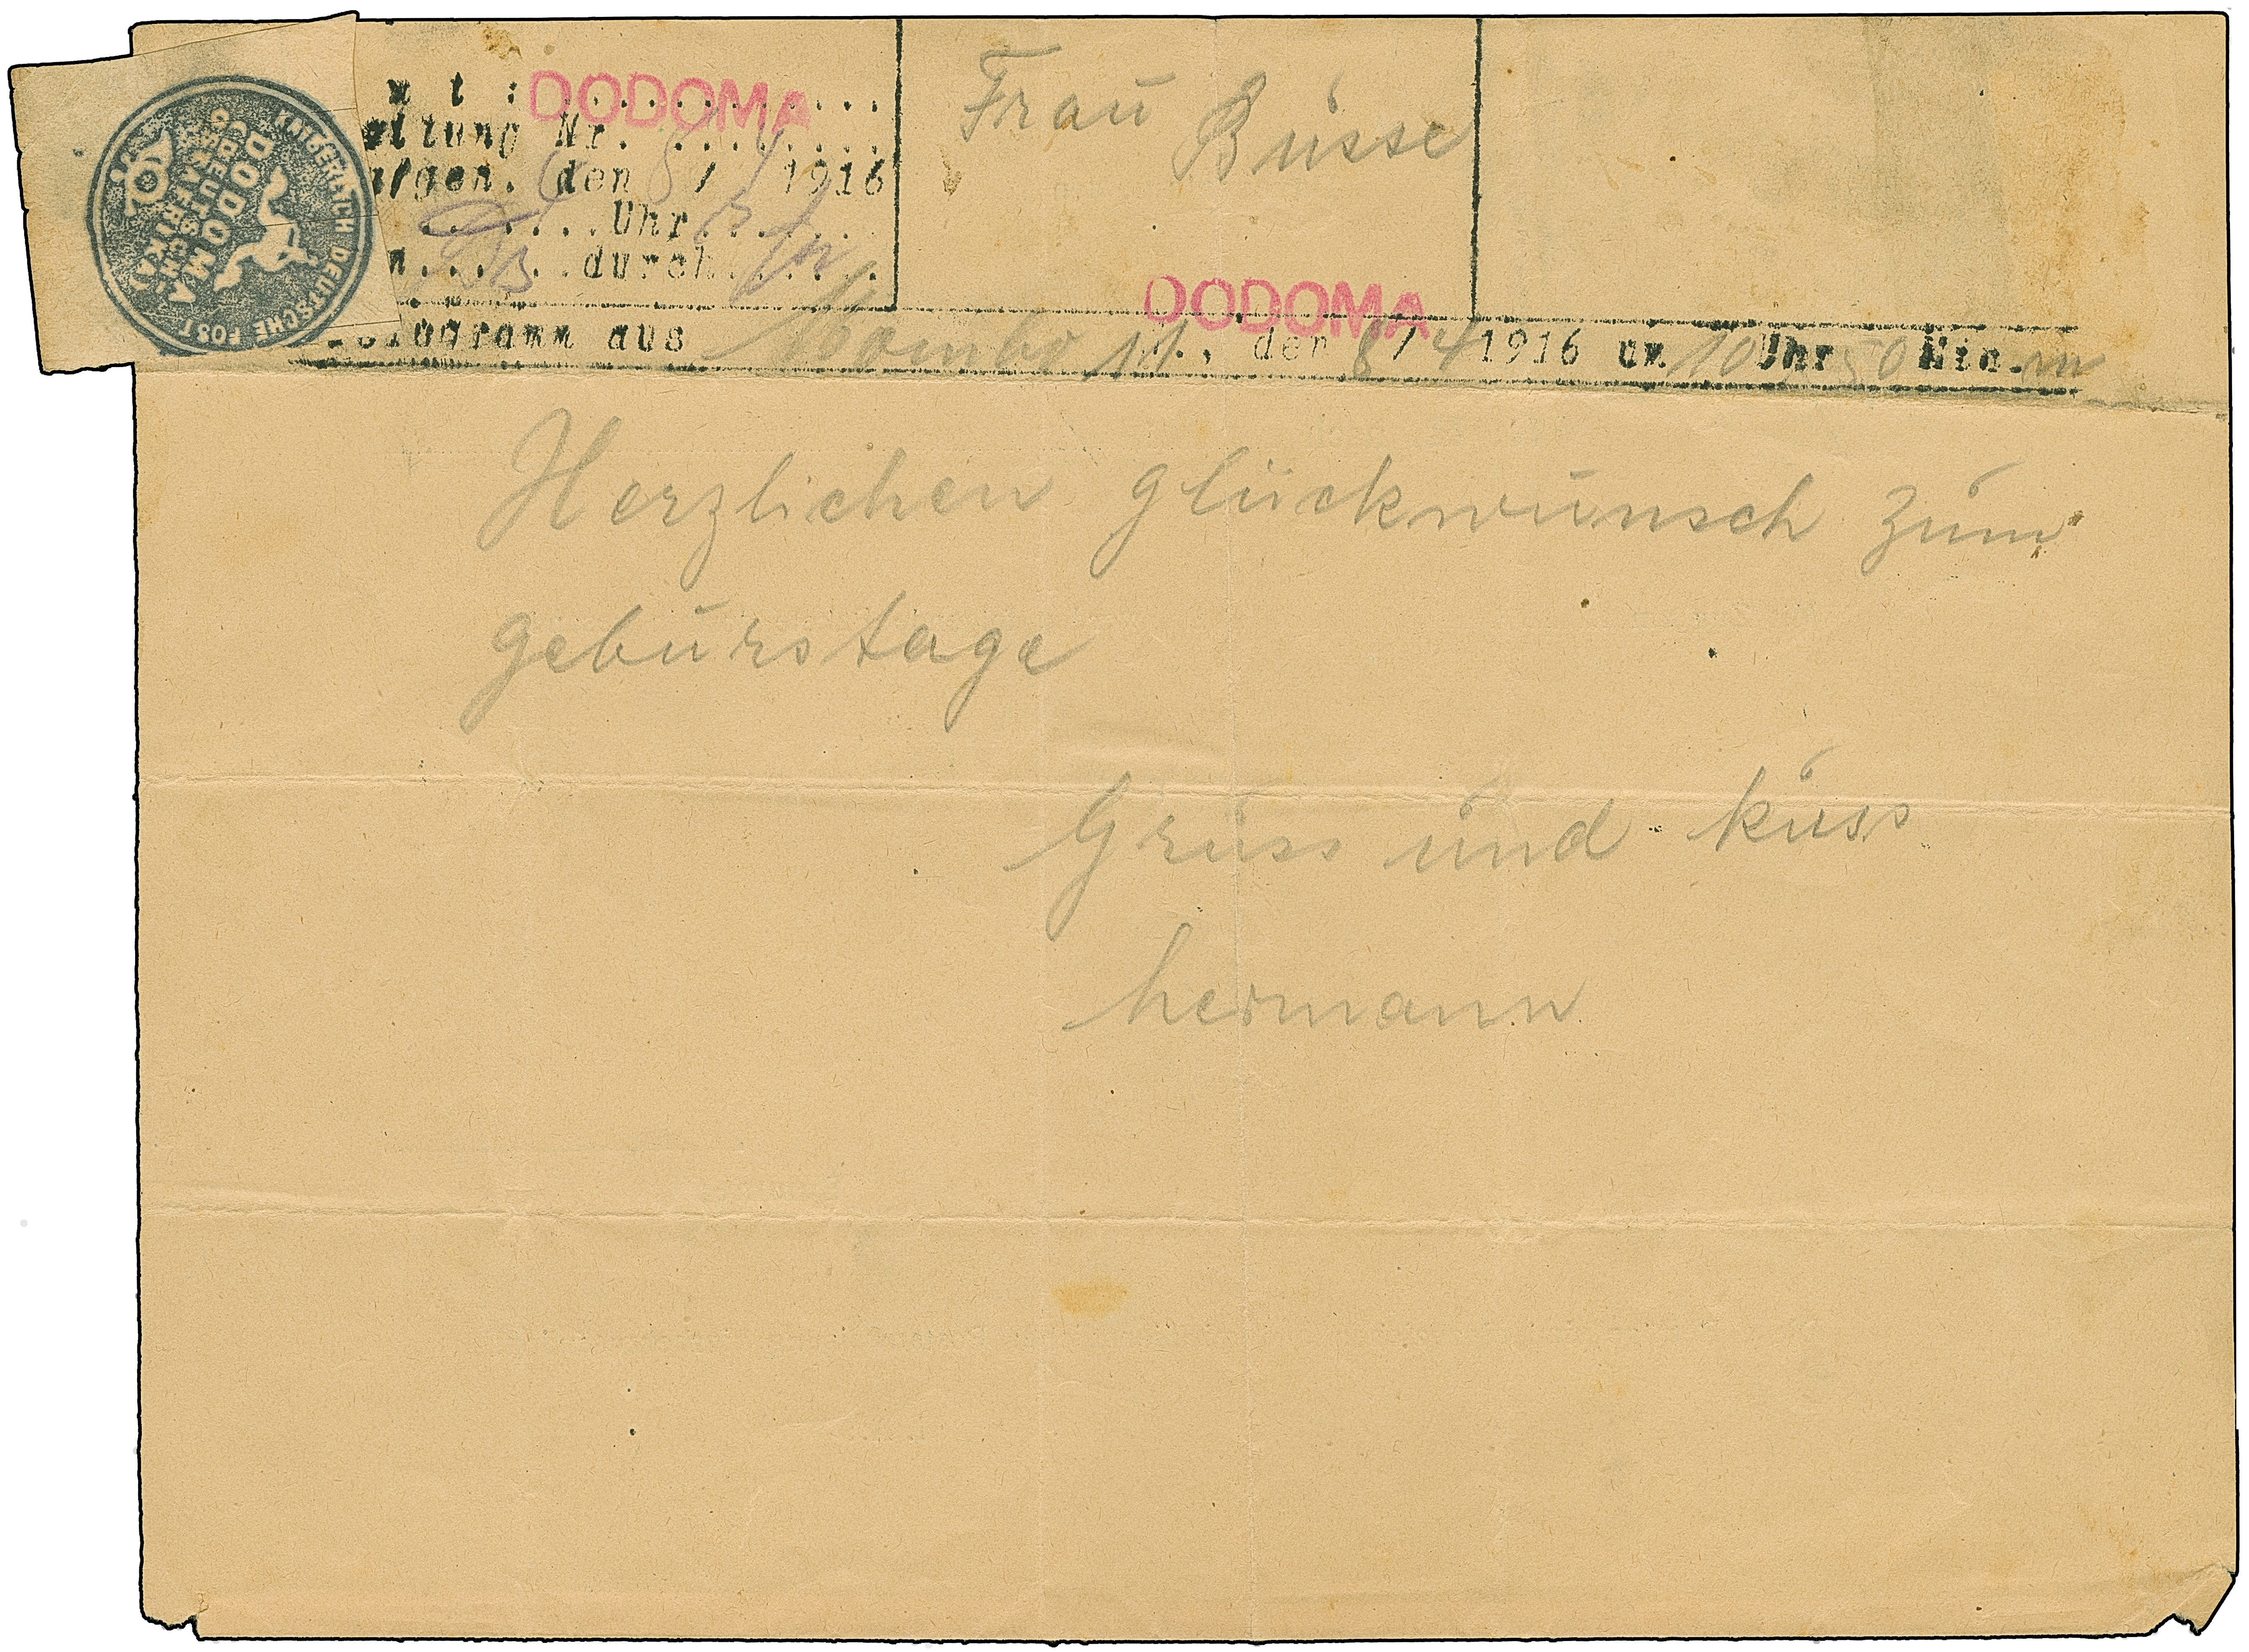 KAISERLICH DEUTSCHE POST
DODOMA
DEUTSCH-
OSTAFRIKA
DODOMA
Nr. ............
den 8/4 1916
.......Uhr.......
.......durch......
Frau
Büsse
DODOMA
Telegramm aus Mombo 11., den 8/4 1916 um 10 Uhr 50 Min. m
Herzlichen glückwünsch züm
gebürstage
Grüss ünd küss
hermann